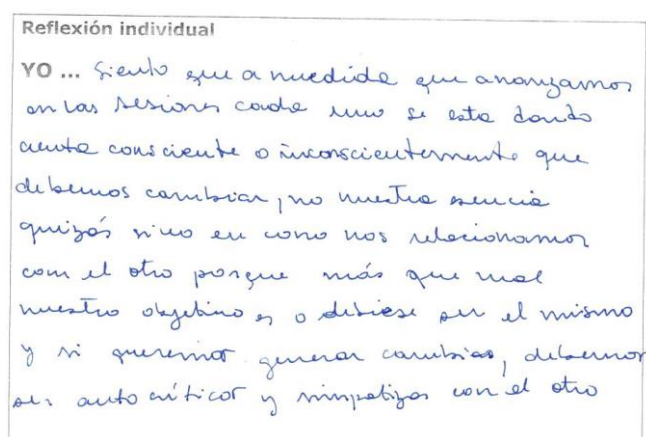 Reflexión individual
YO ... siento que a medida que avanzamos
en las sesiones cada uno se esta dando
cuenta consciente o inconscientemente que
debemos cambiar, no nuestra esencia
quizás sino en como nos relacionamos
con el otro porque más que mal
nuestro objetivo es o debiese ser el mismo
y si queremos generar cambios, debemos
ser auto críticos y simpatizar con el otro